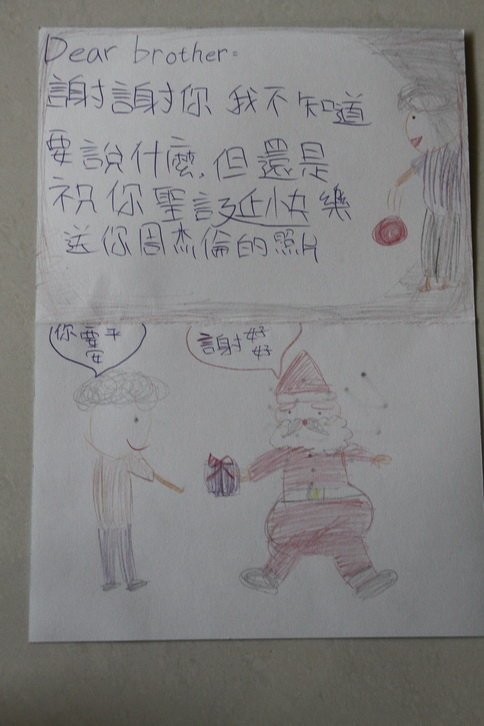 Dear brother:
謝謝你 我不知道
要說什麼,但還是
祝你聖誕快樂
送你周杰倫的照片
你要平
安
謝好
好